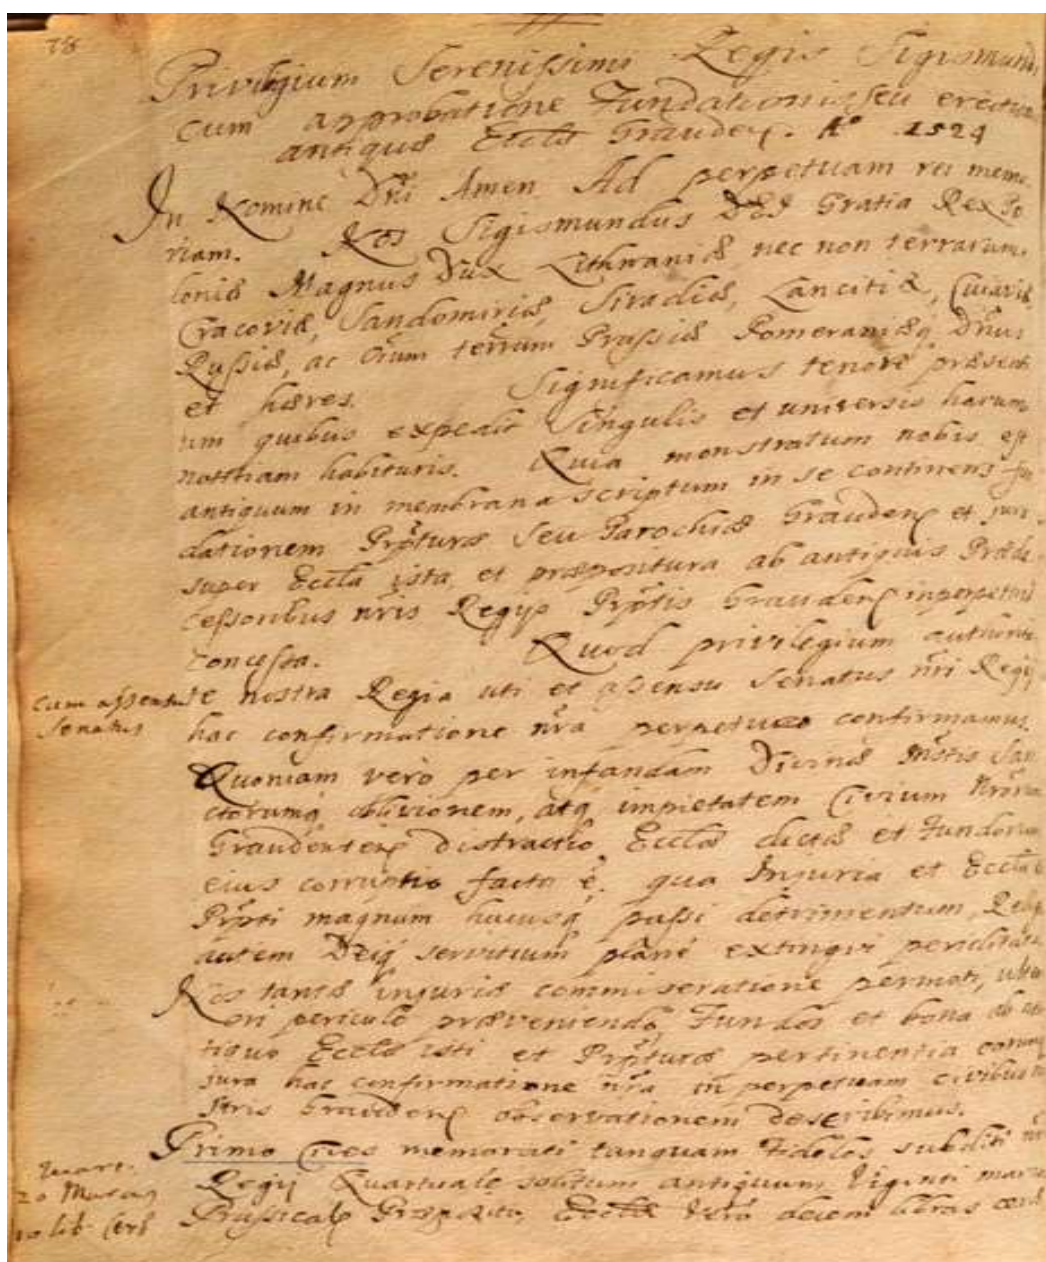 78
Privilegium Serenissimi Regis Sigismundi
cum approbatione Fundationis seu erectionis
antiquæ Eccłæ Graudenʒ. Aº 1524
In Nomine Dńi Amen. Ad perpetuam rei memo-
riam. Nos Sigismundus DEI Gratia Rex Po
loniæ Magnus Dux Lithvaniæ nec non terrarum
Cracoviæ, Sandomiriæ, Siradiæ, Lancitiæ, Cuiaviæ
Russiæ, ac terrarum Prussiæ Pomeraniæq Dńus
et hæres. Significamus tenore præsenti
um quibus expedit Singulis et universis harum
notitiam habituris. Quia monstratum nobis est
antiquum in membrana scriptum in se continens fun
dationem Pṕturæ seu Parochiæ Graudenʒ et juri
super Eccła ista et præpositura ab antiquis Præde
cessoribus nr̃is Regijs Pṕtis Graudenʒ inperpetuũ
concessa. Quod privilegium authorita
te nostra Regia uti et assensu Senatus nr̃i Regij
cum assensu
Senatus
hac confirmatione nr̃a perpetuo confirmamus.
Quoniam vero per infandam Divinæ Sanc
ctorumq oblivionem, atq impietatem Civium Nr̃orum
Graudentenʒ distractio Eccłæ dictæ et Fundorum
eius corruptio facta ẽ, qua Injuria et Eccła
Pṕti magnum hucusq passi detrimentum, Religio
autem Deiq servitium planè extingvi periclitatur
Nos tantæ injuriæ commiseratione permoti,
ori periculo præveniendo, Fundos et bona ab an
tiquo Eccłæ isti et Pṕturæ pertinentia eorumq
jura hac confirmatione nr̃a in perpetuam civibus no
stris Graudenʒ observationem describimus.
Primo Cives memorati tanquam Fideles subditi nr̃i
Regij Quartuale solitum antiquum Viginti marcas
20 Marcas
10 lib. Ceræ
Prussicales Præposito, Eccłæ vero decem libras ceræ